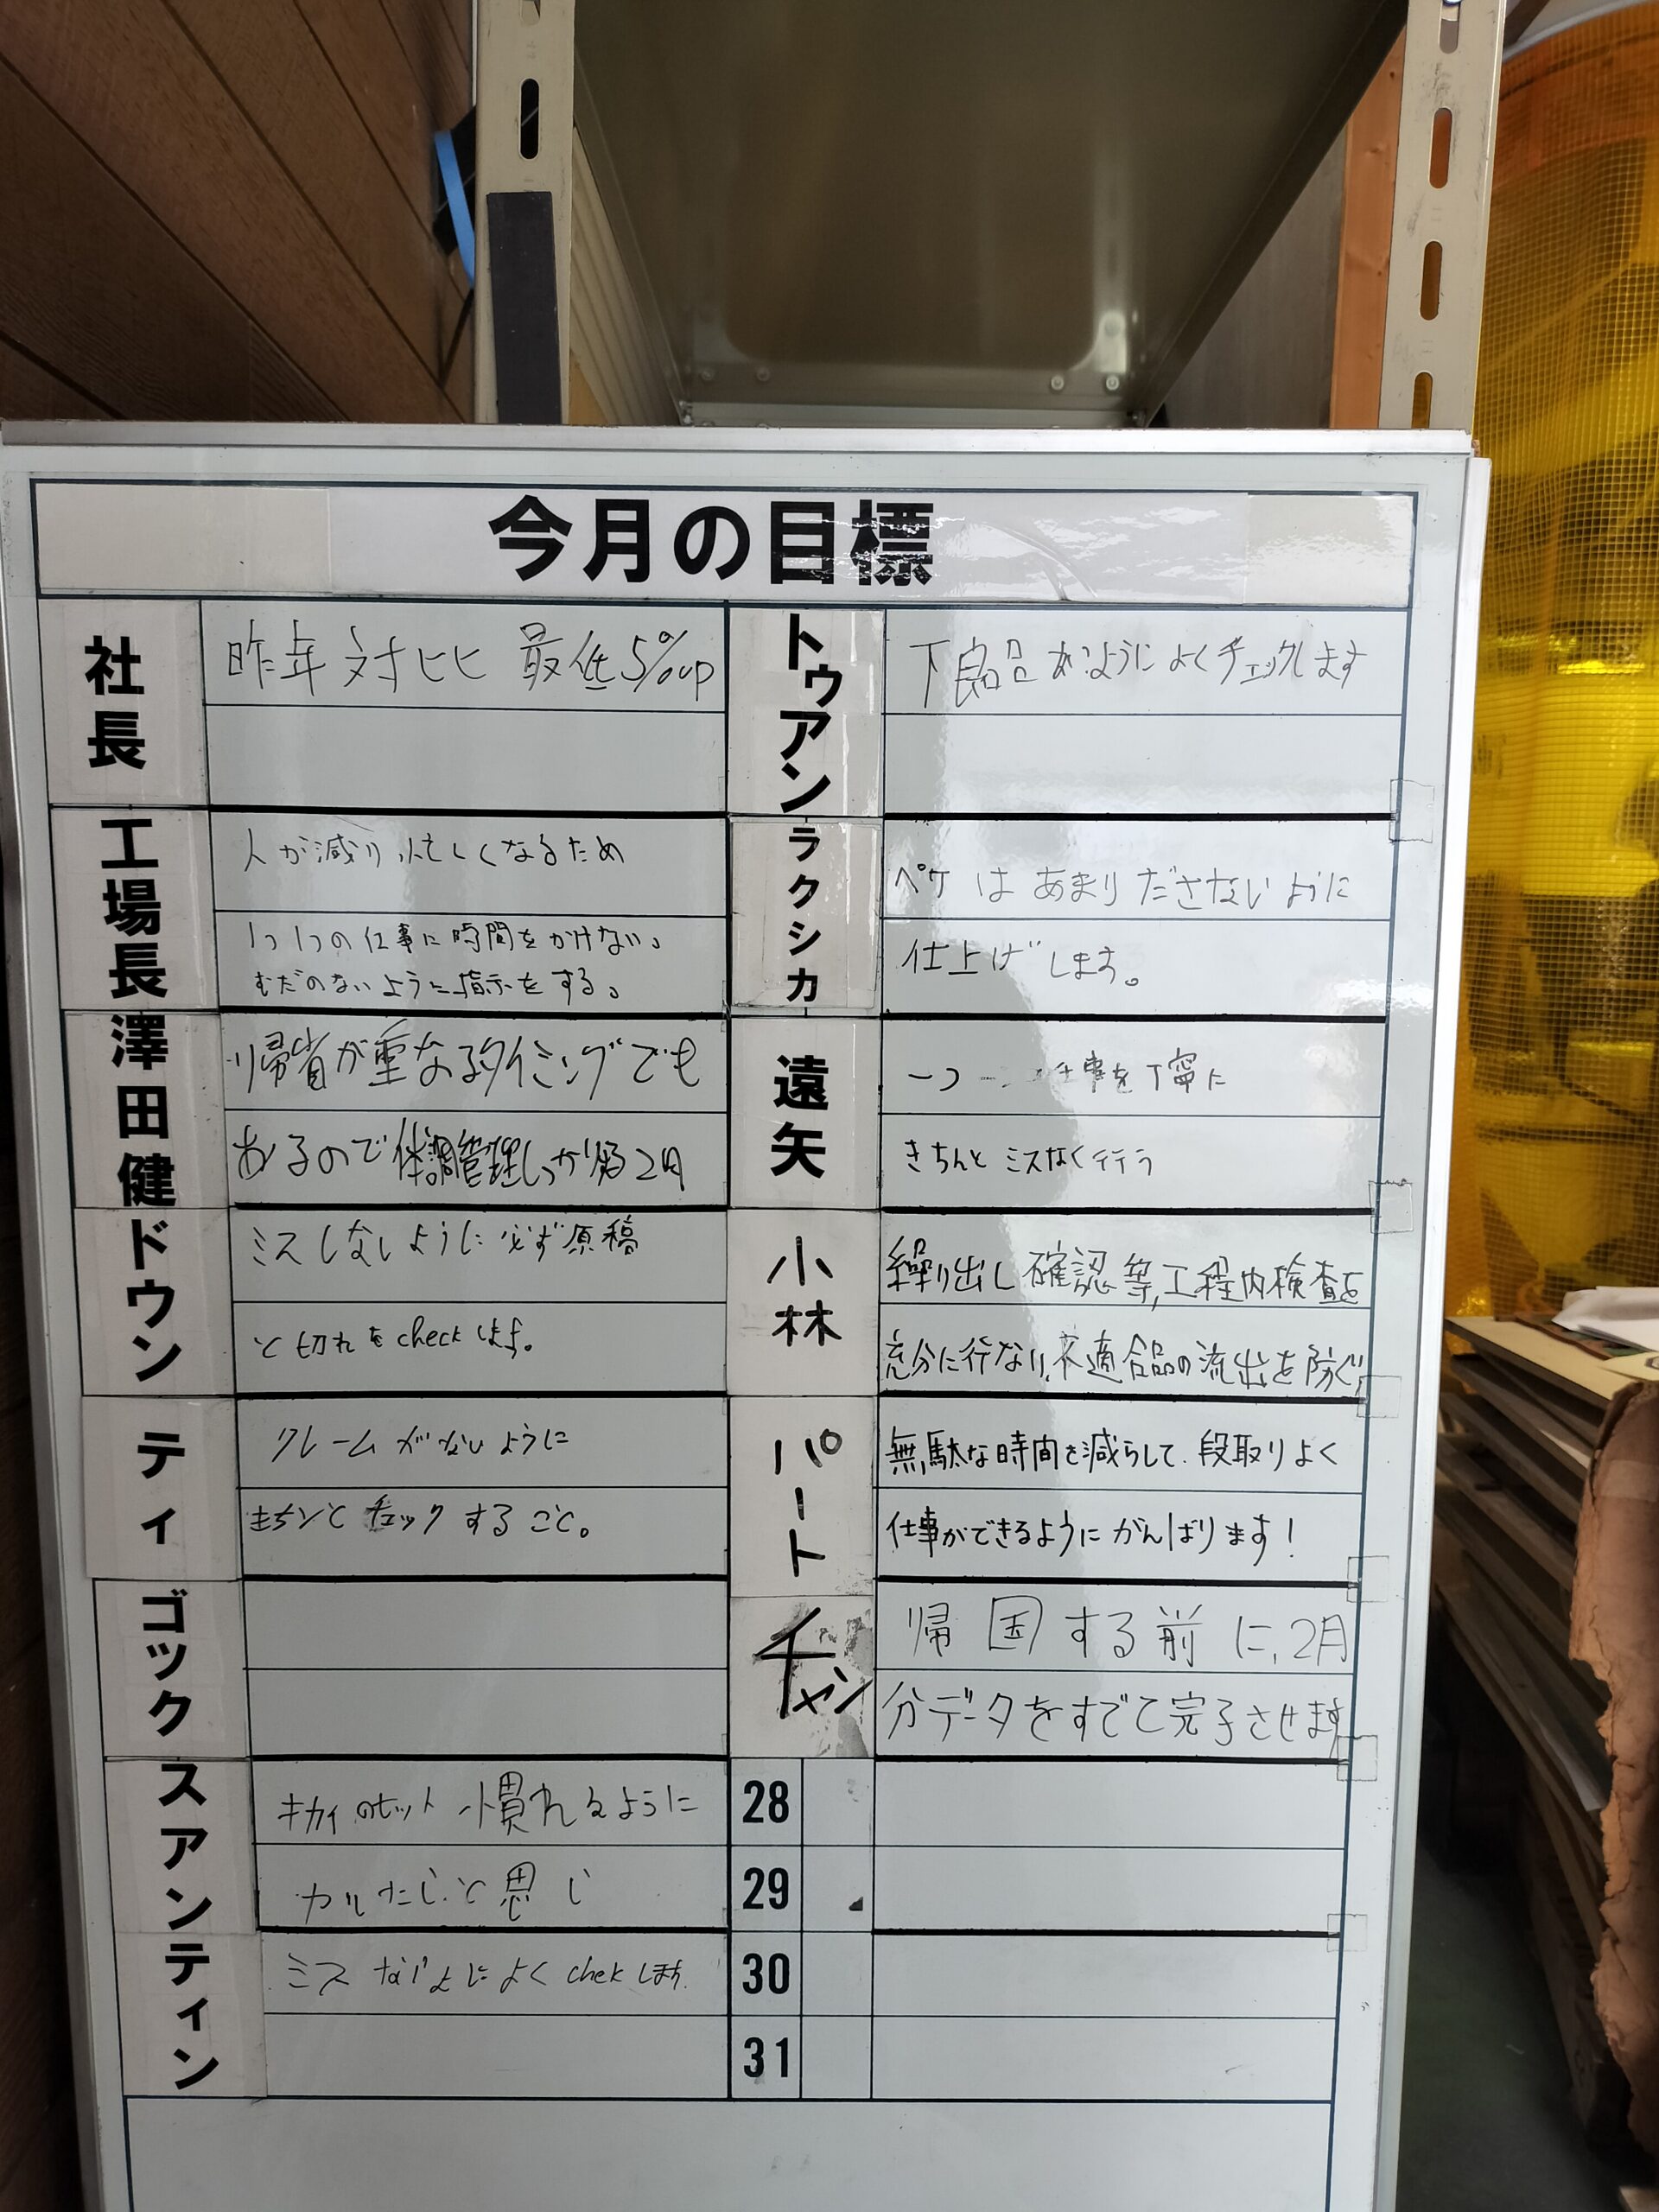 今月の目標
社長
昨年対比 最低5%up
工場長
人が減り忙しくなるため
1つ1つの仕事に時間をかけない。
むだのないように指示をする。
澤田健
帰省が重なるタイミングでも
あるので体調管理しっかり
2月
ドウン
ミスしないように必ず原稿
と切れをcheckします。
ティ
クレームがないように
きちンと チェックすること。
ゴック
スアン
キカイのセット 慣れるように
思
ティン
ミス
よく chekします.
トゥアン
ように よくチェックします
ラクシカ
ペケ は あまり ださないように
仕上げします。
遠矢
一つ
仕事を丁寧に
きちんと ミスなく行う
小林
繰り出し確認等,工程内検査を
充分に行ない、不適合品の流出を防ぐ
パート
無駄な時間を減らして、段取りよく
仕事ができるように がんばります!
チャン
帰国する前に,2月
分データをすでて完了させます
28
29
30
31